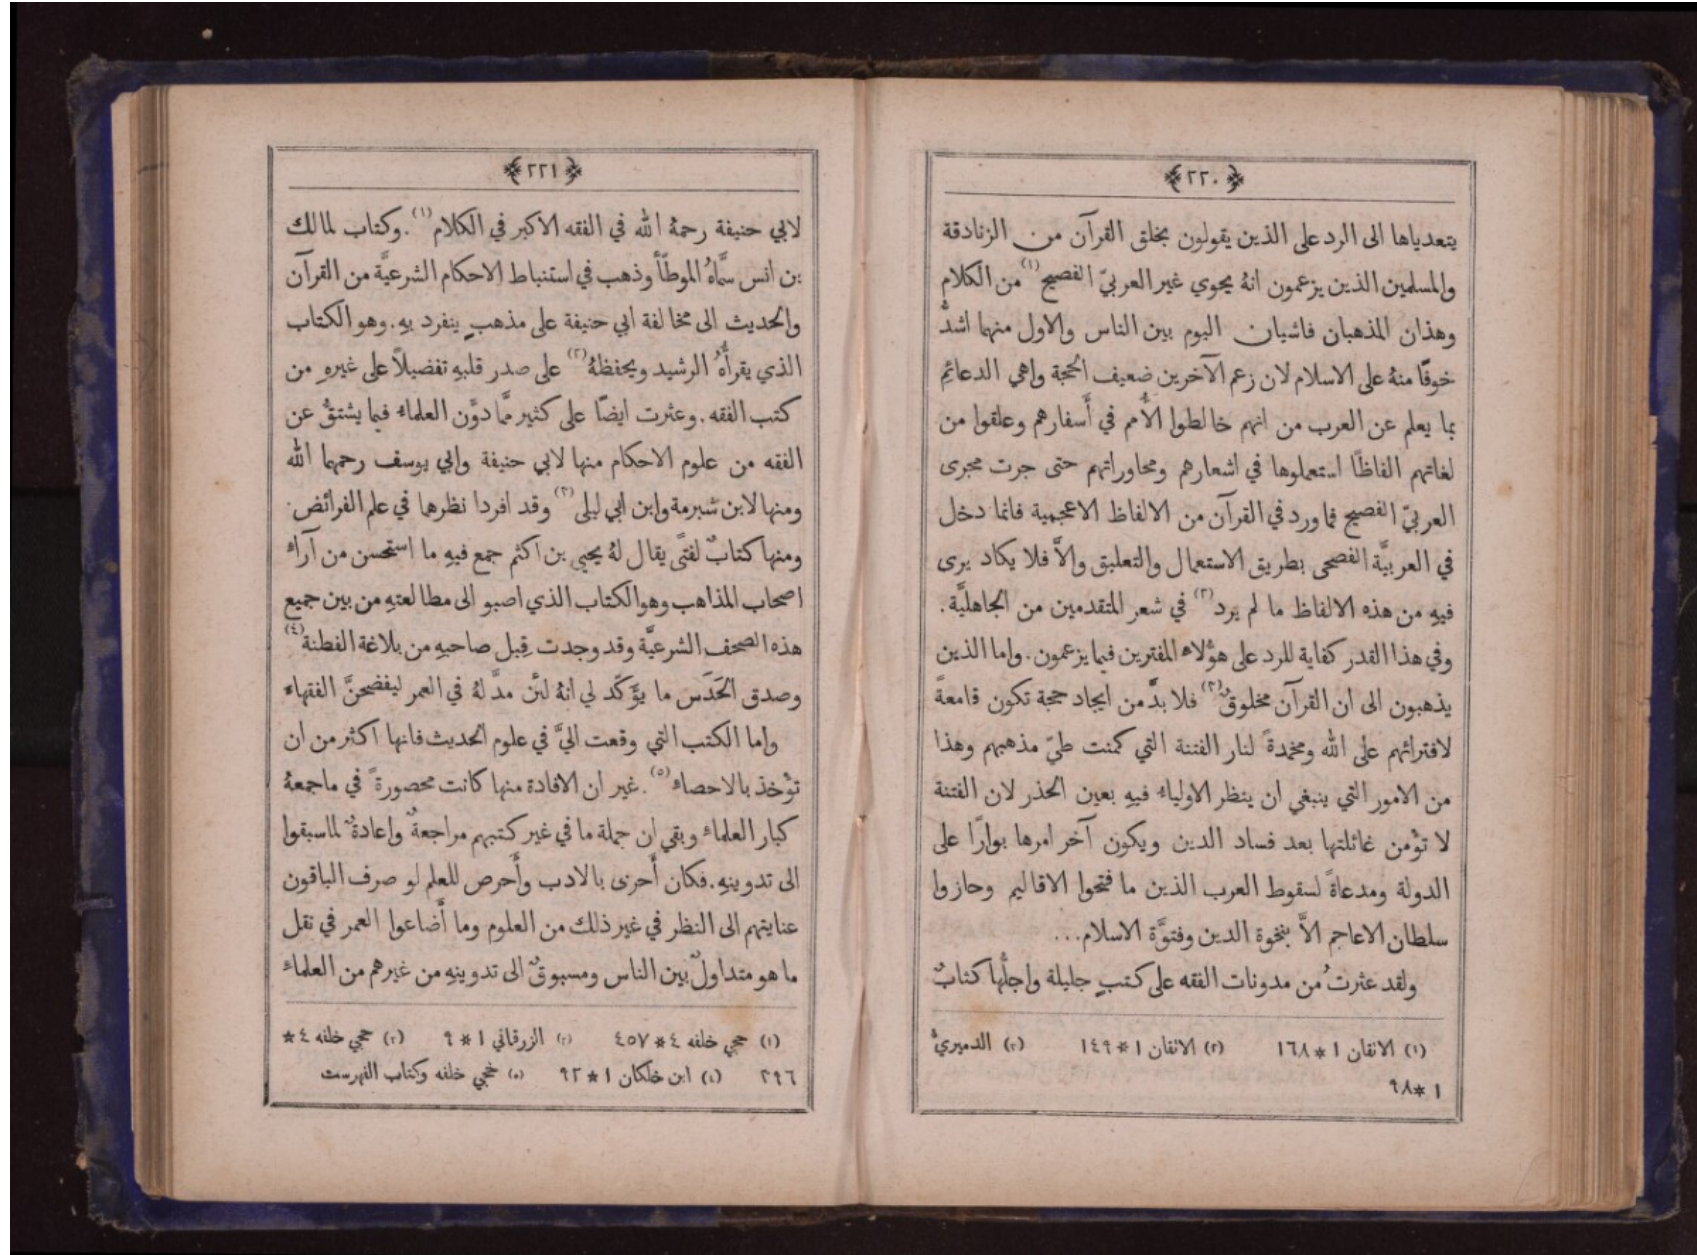 ﴿٢٢٠﴾
يتعدياها الى الرد على الذين يقولون بخلق القرآن من الزنادقة
والمسلمين الذين يزعمون انهُ يحوي غير العربيّ الفصيح (١) من الكلام
وهذان المذهبان فاشيان اليوم بين الناس والاول منهما اشدُّ
خوفًا منهُ على الاسلام لان زعم الآخرين ضعيف الحجة واهي الدعائمِ
بما يعلم عن العرب من انهم خالطوا الأُمم في أَسفارهم وعلقوا من
لغاتهم الفاظًا استعملوها في اشعارهم ومحاوراتهم حتى جرت مجرى
العربيّ الفصيح فما ورد في القرآن من الالفاظ الاعجمية فانما دخل
في العربيَّة الفصحى بطريق الاستعمال والتعليق والاَّ فلا يكاد يرى
فيهِ من هذه الالفاظ ما لم يرد (٢) في شعر المتقدمين من الجاهليَّة.
وفي هذا القدر كفاية للرد على هؤُلاء المفترين فيما يزعمون. واما الذين
يذهبون الى ان القرآن مخلوقٌ (٣) فلا بدَّ من ايجاد حجة تكون قامعةً
لافترائهم على الله ومخمدةً لنار الفتنة التي كمنت طيّ مذهبهم وهذا
من الامور التي ينبغي ان ينظر الاولياء فيهِ بعين الحذر لان الفتنة
لا تؤْمن غائلتها بعد فساد الدين ويكون آخر امرها بوارًا على
الدولة ومدعاةً لسقوط العرب الذين ما فتحوا الاقاليم وحازوا
سلطان الاعاجم الاَّ بنخوة الدين وفتوَّة الاسلام...
ولقد عثرتُ من مدونات الفقه على كتبٍ جليلة واجلُّها كتابٌ
(١) الاتقان ١ * ١٦٨ (٢) الاتقان ١ * ١٤٩ (٣) الدميريُّ
١ * ٩٨
﴿٢٢١﴾
لابي حنيفة رحمهُ الله في الفقه الاكبر في الكلام (١). وكتاب لمالك
بن انس سمَّاهُ الموطَّأ وذهب في استنباط الاحكام الشرعيَّة من القرآن
والحديث الى مخالفة ابي حنيفة على مذهبٍ ينفرد بهِ. وهو الكتاب
الذي يقرأُهُ الرشيد ويحفظهُ (٢) على صدر قلبهِ تفضيلاً على غيرهِ من
كتب الفقه. وعثرت ايضًا على كثير ممَّا دوَّن العلماء فيما يشتقُّ عن
الفقه من علوم الاحكام منها لابي حنيفة وابي يوسف رحمهما الله
ومنها لابن شبرمة وابن ابي ليلى (٣) وقد افردا نظرها في علم الفرائض.
ومنها كتابٌ لفتًى يقال لهُ يحيي بن اكثم جمع فيهِ ما استحسن من آراء
اصحاب المذاهب وهو الكتاب الذي اصبو الى مطالعتهِ من بين جميع
هذه الصحف الشرعيَّة وقد وجدت قِبل صاحبهِ من بلاغة الفطنة (٤)
وصدق الحَدَس ما يؤَكّد لي انهُ لئن مدَّ لهُ في العمر ليفضحنَّ الفقهاء
واما الكتب التي وقعت اليَّ في علوم الحديث فانها اكثر من ان
تؤْخذ بالاحصاء (٥). غير ان الافادة منها كانت محصورةً في ما جمعهُ
كبار العلماء وبقي ان جملة ما في غير كتبهم مراجعةٌ واعادةٌ لما سبقوا
الى تدوينهِ. فكان أَحرى بالادب وأَحرص للعلم لو صرف الباقون
عنايتهم الى النظر في غير ذلك من العلوم وما أَضاعوا العمر في نقل
ما هو متداولٌ بين الناس ومسبوقٌ الى تدوينهِ من غيرهم من العلماء
(١) حجي خلفه ٤ * ٤٥٧ (٢) الزرقاني ١ * ٩ (٣) حجي خلفه ٤ *
٣٩٦ (٤) ابن خلكان ١ * ٩٢ (٥) حجي خلفه وكتاب الفهرست